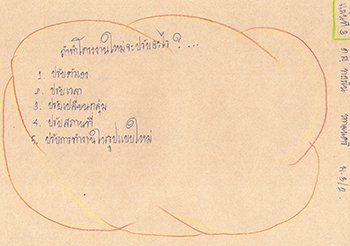 ถ้าทำโครงงานใหม่จะปรับอะไร ? ...
1. ปรับตัวเอง
2. ปรับเวลา
3. ปรับเปลี่ยนกลุ่ม
4. ปรับสถานที่
5. ปรับการทำงานในรูปแบบใหม่
แผ่นที่ 3
ด.ญ.
ม.3/2